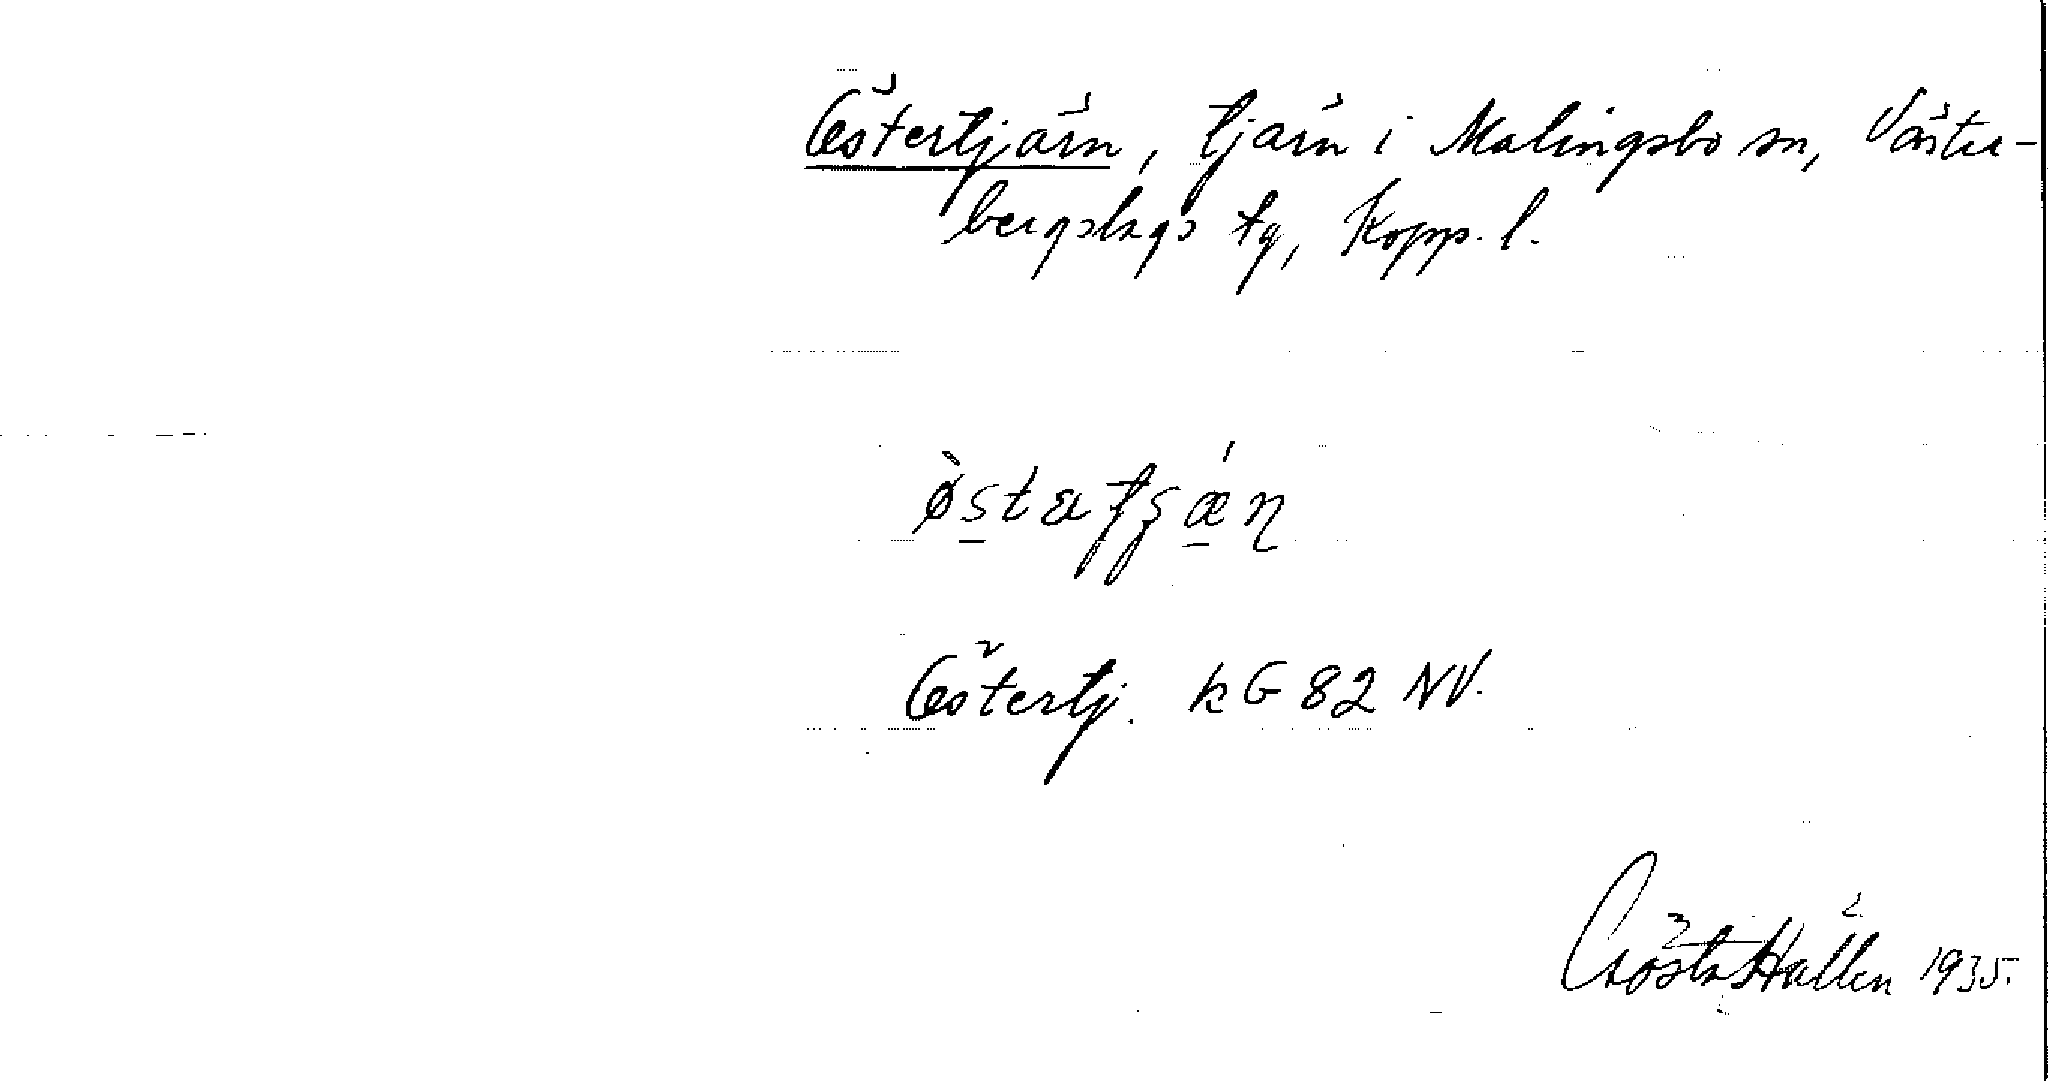 Östertjärn, tjärn i Malingsbo sn, Väster-
bergslags tg, Kopp. l.
Östertj. kG 82 NV.
Gösta Hallén 1935.